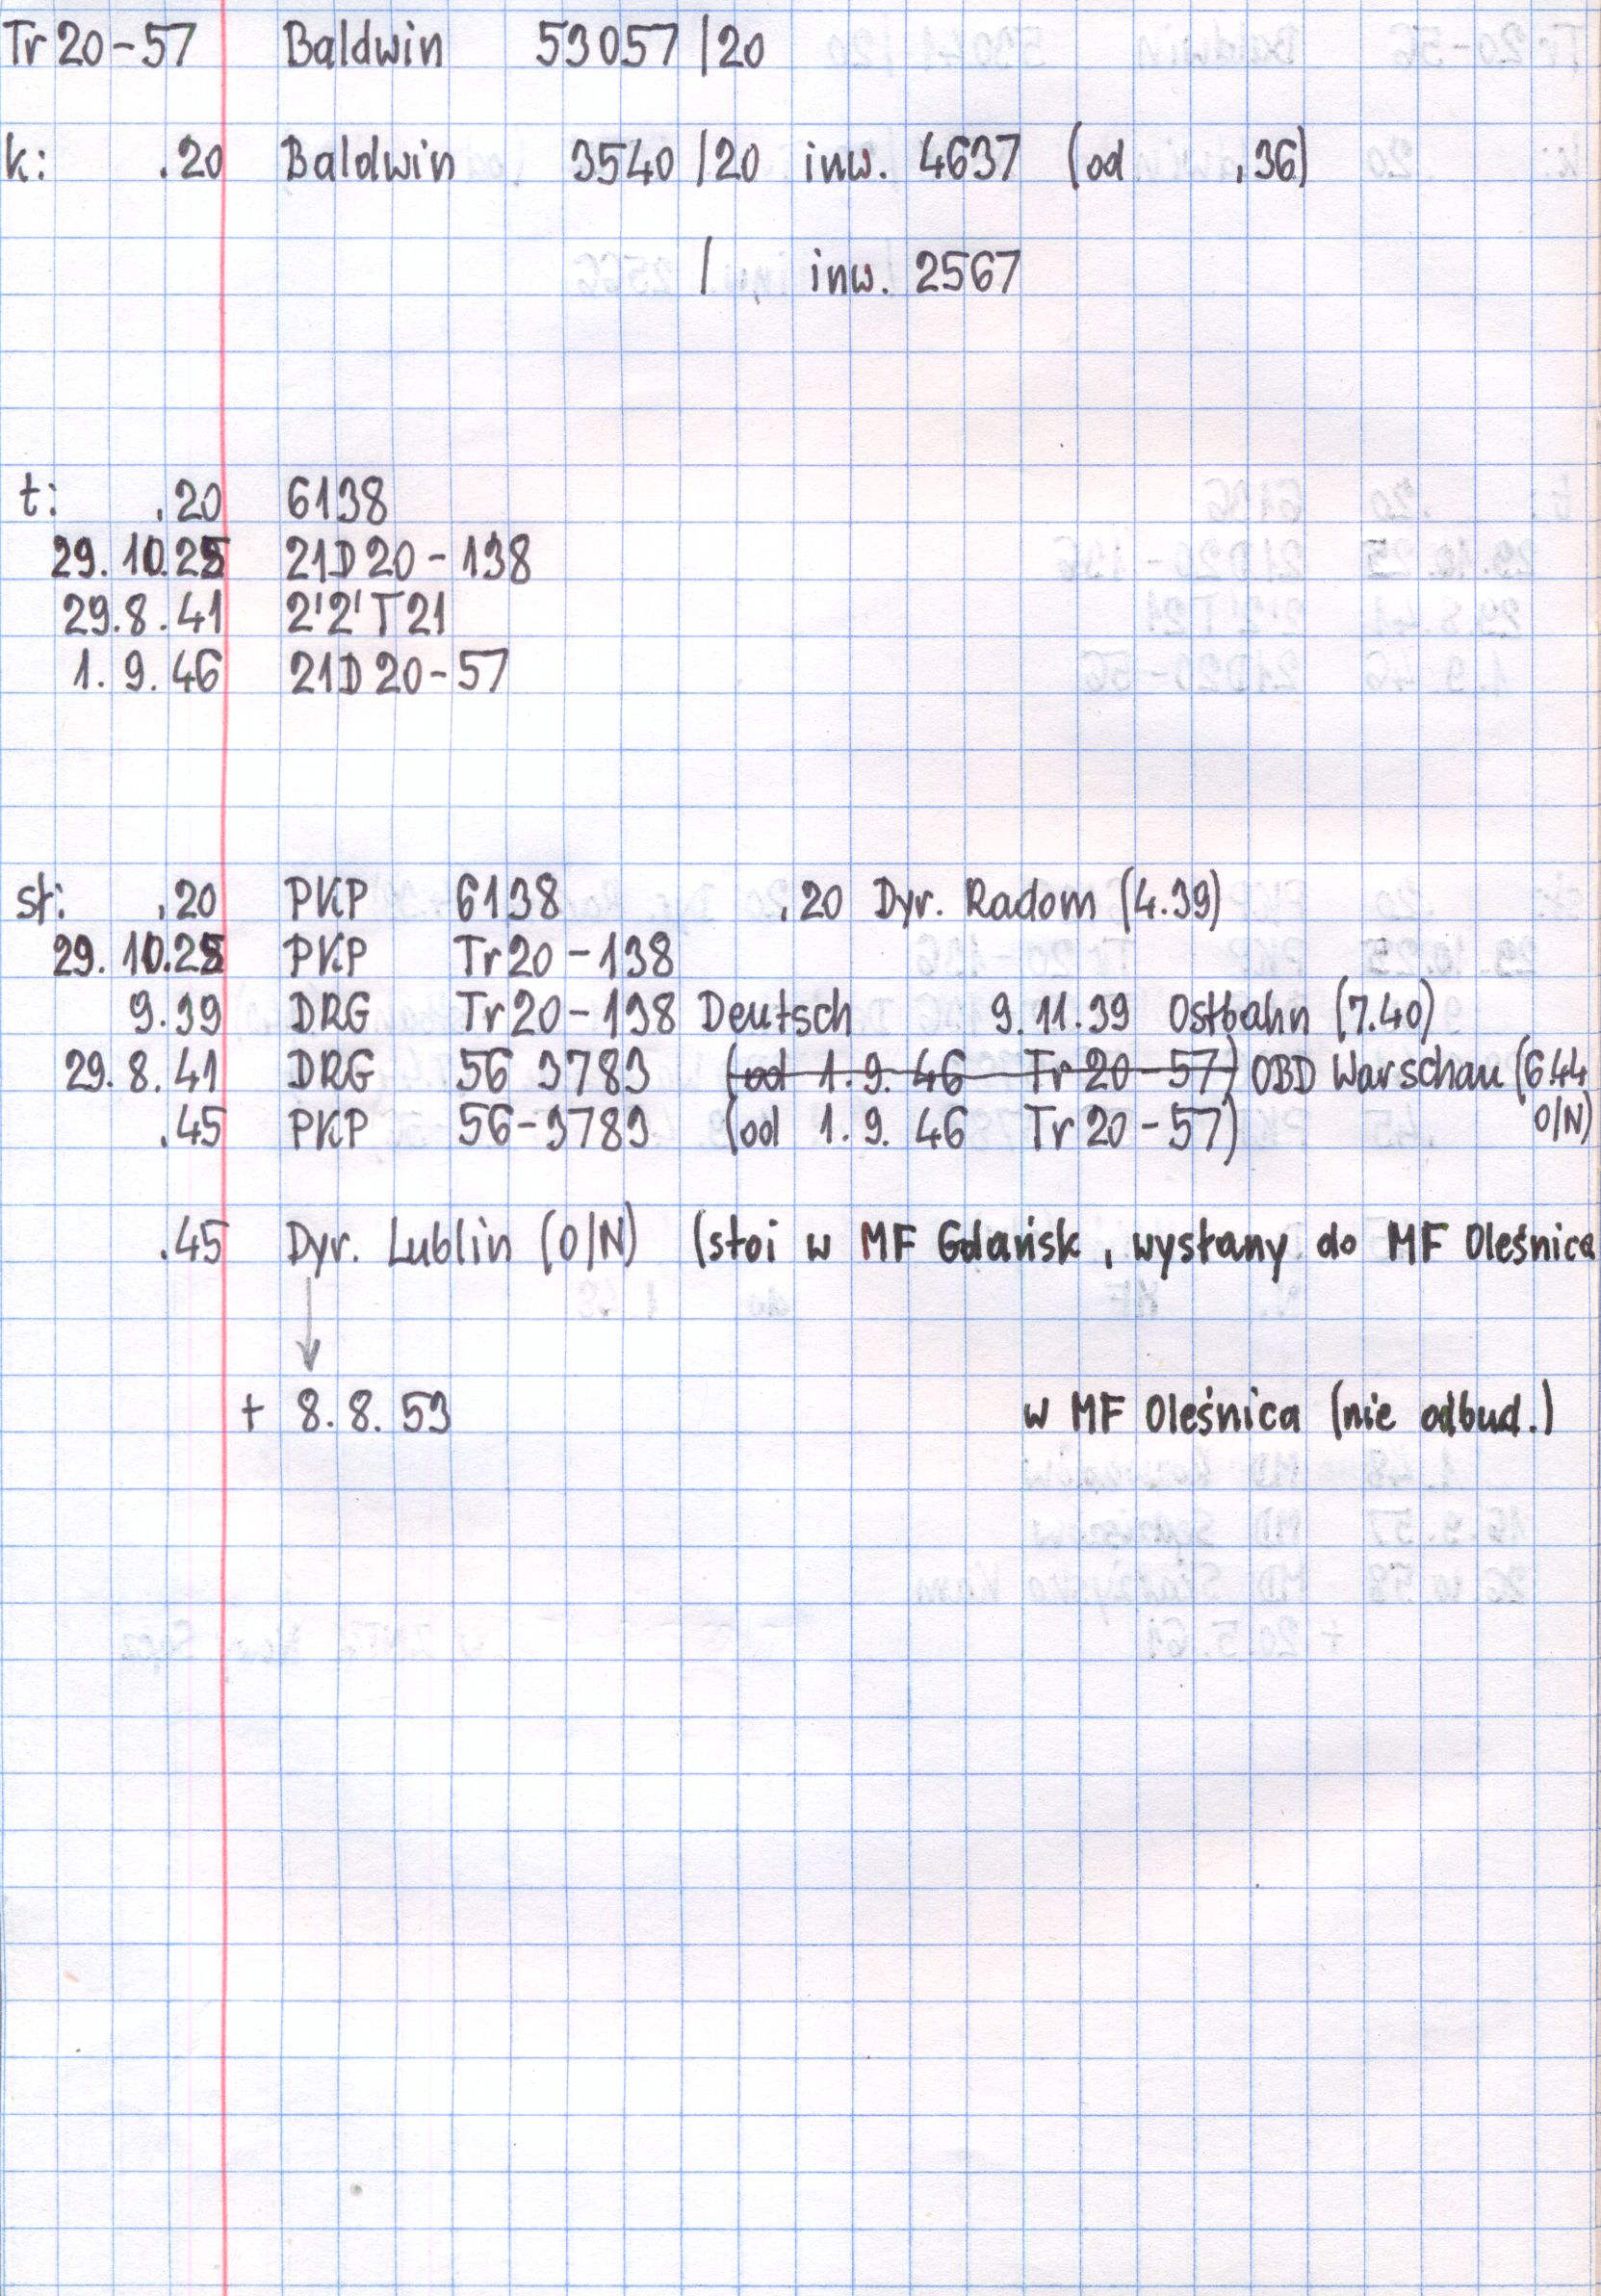 Tr 20-57 Baldwin 53057 /20
k: .20 Baldwin 3540 /20 inw. 4637 (od .36)
/ inw. 2567
t: .20 6138
29.10.25 21D 20-138
29.8.41 2'2' T 21
1.9.46 21D 20-57
st: .20 PKP 6138 .20 Dyr. Radom (4.39)
29.10.25 PKP Tr 20-138
9.39 DRG Tr 20-138 Deutsch 9.11.39 Ostbahn (7.40)
29.8.41 DRG 56 3783 (od 1.9.46 Tr 20-57) OBD Warschau (6.44
O/N)
.45 PKP 56-3783 (od 1.9.46 Tr 20-57)
.45 Dyr. Lublin (O/N) (stoi w MF Gdańsk, wysłany do MF Oleśnica
+ 8.8.53 w MF Oleśnica (nie odbud.)